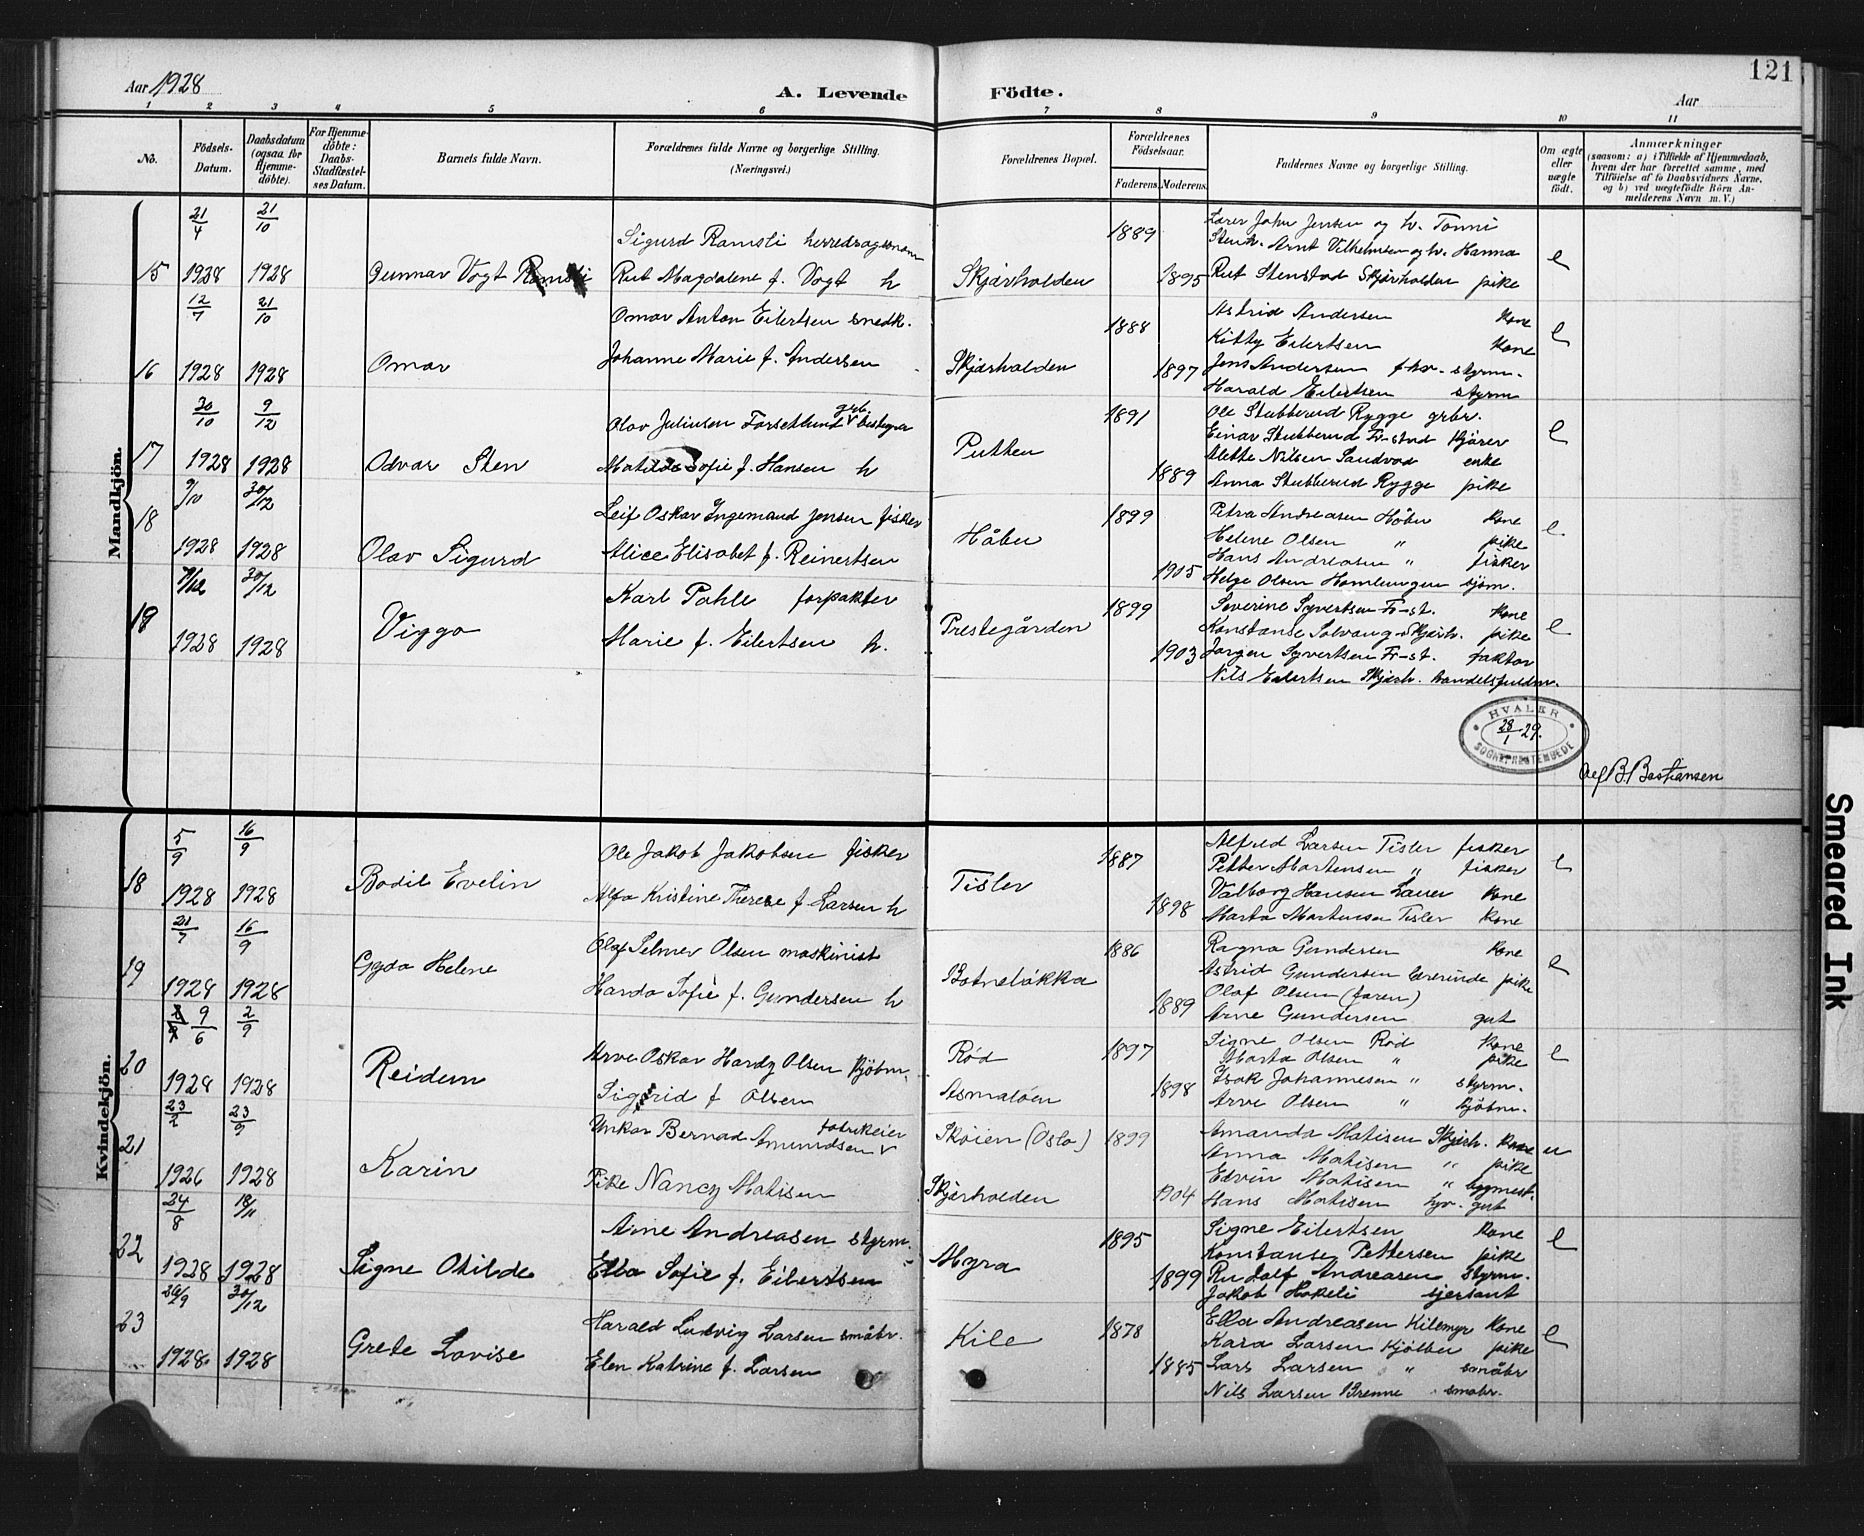 Aar 1928
A. Levende Födte.
Aar
121
1 2 3 4 5 6 7 8 9 10 11
No.
Födsels-Datum.
Daabsdatum (ogsaa for Hjemme-döbte).
For Hjemme-döbte: Daabs-Stadfæstel-ses Datum.
Barnets fulde Navn.
Forældrenes fulde Navne og borgerlige Stilling.
(Næringsvei.)
Forældrenes Bopæl.
Forældrenes Födselsaar.
Faderens. Moderens.
Faddernes Navne og borgerlige Stilling.
Om ægte eller uægte födt.
Anmærkninger
(saasom: a) i Tilfælde af Hjemmedaab, hvem der har forrettet samme, med Tilföielse af to Daabsvidners Navne, og b) ved uægtefödte Börn An-melderens Navn m. V.)
Mandkjön.
15 21/4 1928 21/10 1928 Gunnar Vogt Ramsli
Sigurd Ramsli herredragronom
Rut Magdalene f. Vogt h
Skjærhalden 1889 1895
Lærer John Jensen og h. Tonni
Stenh. Arnt Vilhelmsen og h. Hanna
Rut Stenstad Skjærhalden pike
e
16 12/7 1928 21/10 1928 Omar
Omar Anton Eilertsen snedk.
Johanne Marie f. Andersen
Skjærhalden 1888 1897
Astrid Andersen kone
Kitty Eilertsen kone
Jens Andersen fhv. styrm.
Harald Eilertsen styrm
e
17 30/10 1928 9/12 1928 Odvar Sten
Olav Juliusen Forsetlund grb. bestyrer
Matilde Sofie f. Hansen h
Putten 1891 1889
Ole Stubberud Rygge grbr.
Einar Stubberud Fr-stad kjører
Alette Nilsen Sandvad enke
Anna Stubberud Rygge pike
e
18 9/10 1928 30/12 1928 Olav Sigurd
Leif Oskar Ingemand Jensen fisker
Alice Elisabet f. Reinertsen
Håbu 1899 1905
Petra Andreasen Håbu kone
Helene Olsen " pike
Hans Andreasen " fisker
Helge Olsen Homlungen sjøm.
e
19 /12 1928 30/12 1928 Viggo
Karl Pahle forpakter
Marie f. Eilertsen h.
Prestegården 1899 1903
Severine Syvertsen Fr-st. kone
Konstanse Solvang Skjærh. pike
Jørgen Syvertsen Fr-st. faktor
Nils Eilertsen Skjærh. handelsfuldm.
e
HVALER SOGNEPRESTEMBEDE
28/1 29.
Alf B. Bastiansen
Kvindekjön.
18 5/9 1928 16/9 1928 Bodil Evelin
Ole Jakob Jakobsen fisker
Alfa Kristine Therese f. Larsen h
Tisler 1887 1898
Alfred Larsen Tisler fisker
Petter Martensen " fisker
Valborg Hansen Lauer kone
Marta Martensen Tisler kone
e
19 21/7 1928 16/9 1928 Gyda Helene
Olaf Selmer Olsen maskinist
Harda Sofie f. Gundersen h
Botneløkka 1886 1889
Ragna Gundersen kone
Astrid Gundersen lærerinde pike
Olaf Olsen (faren)
Arne Gundersen gut
e
20 9/6 1928 2/9 1928 Reidun
Arve Oskar Hardy Olsen kjøbm.
Sigrid f Olsen
Rød Asmaløen 1897 1898
Signe Olsen Rød kone
Marta Olsen " pike
Isak Johannesen " styrm.
Arve Olsen " kjøbm.
e
21 23/2 1926 23/9 1928 Karin
Unkar Bernad Amundsen fabrikeier
Pike Nancy Matisen
Skøien (Oslo) 1899
Skjærhalden 1904
Amanda Matisen Skjærh. kone
Anna Matisen " pike
Edvin Matisen " bygmest.
Hans Matisen hjv. gut
u
22 24/8 1928 18/11 1928 Signe Otilde
Arne Andreasen styrm.
Ella Sofie f. Eilertsen
Myra 1895 1899
Signe Eilertsen kone
Konstanse Pettersen pike
Rudolf Andreasen styrm.
Jakob Hokeli sjersant
e
23 26/9 1928 30/12 1928 Grete Lovise
Harald Ludvig Larsen småbr.
Elen Katrine f. Larsen
Kile 1878 1885
Ella Andreasen Kilemyr kone
Kara Larsen Kjølbu pike
Lars Larsen " småbr
Nils Larsen Brenne småbr.
e
Smeared Ink